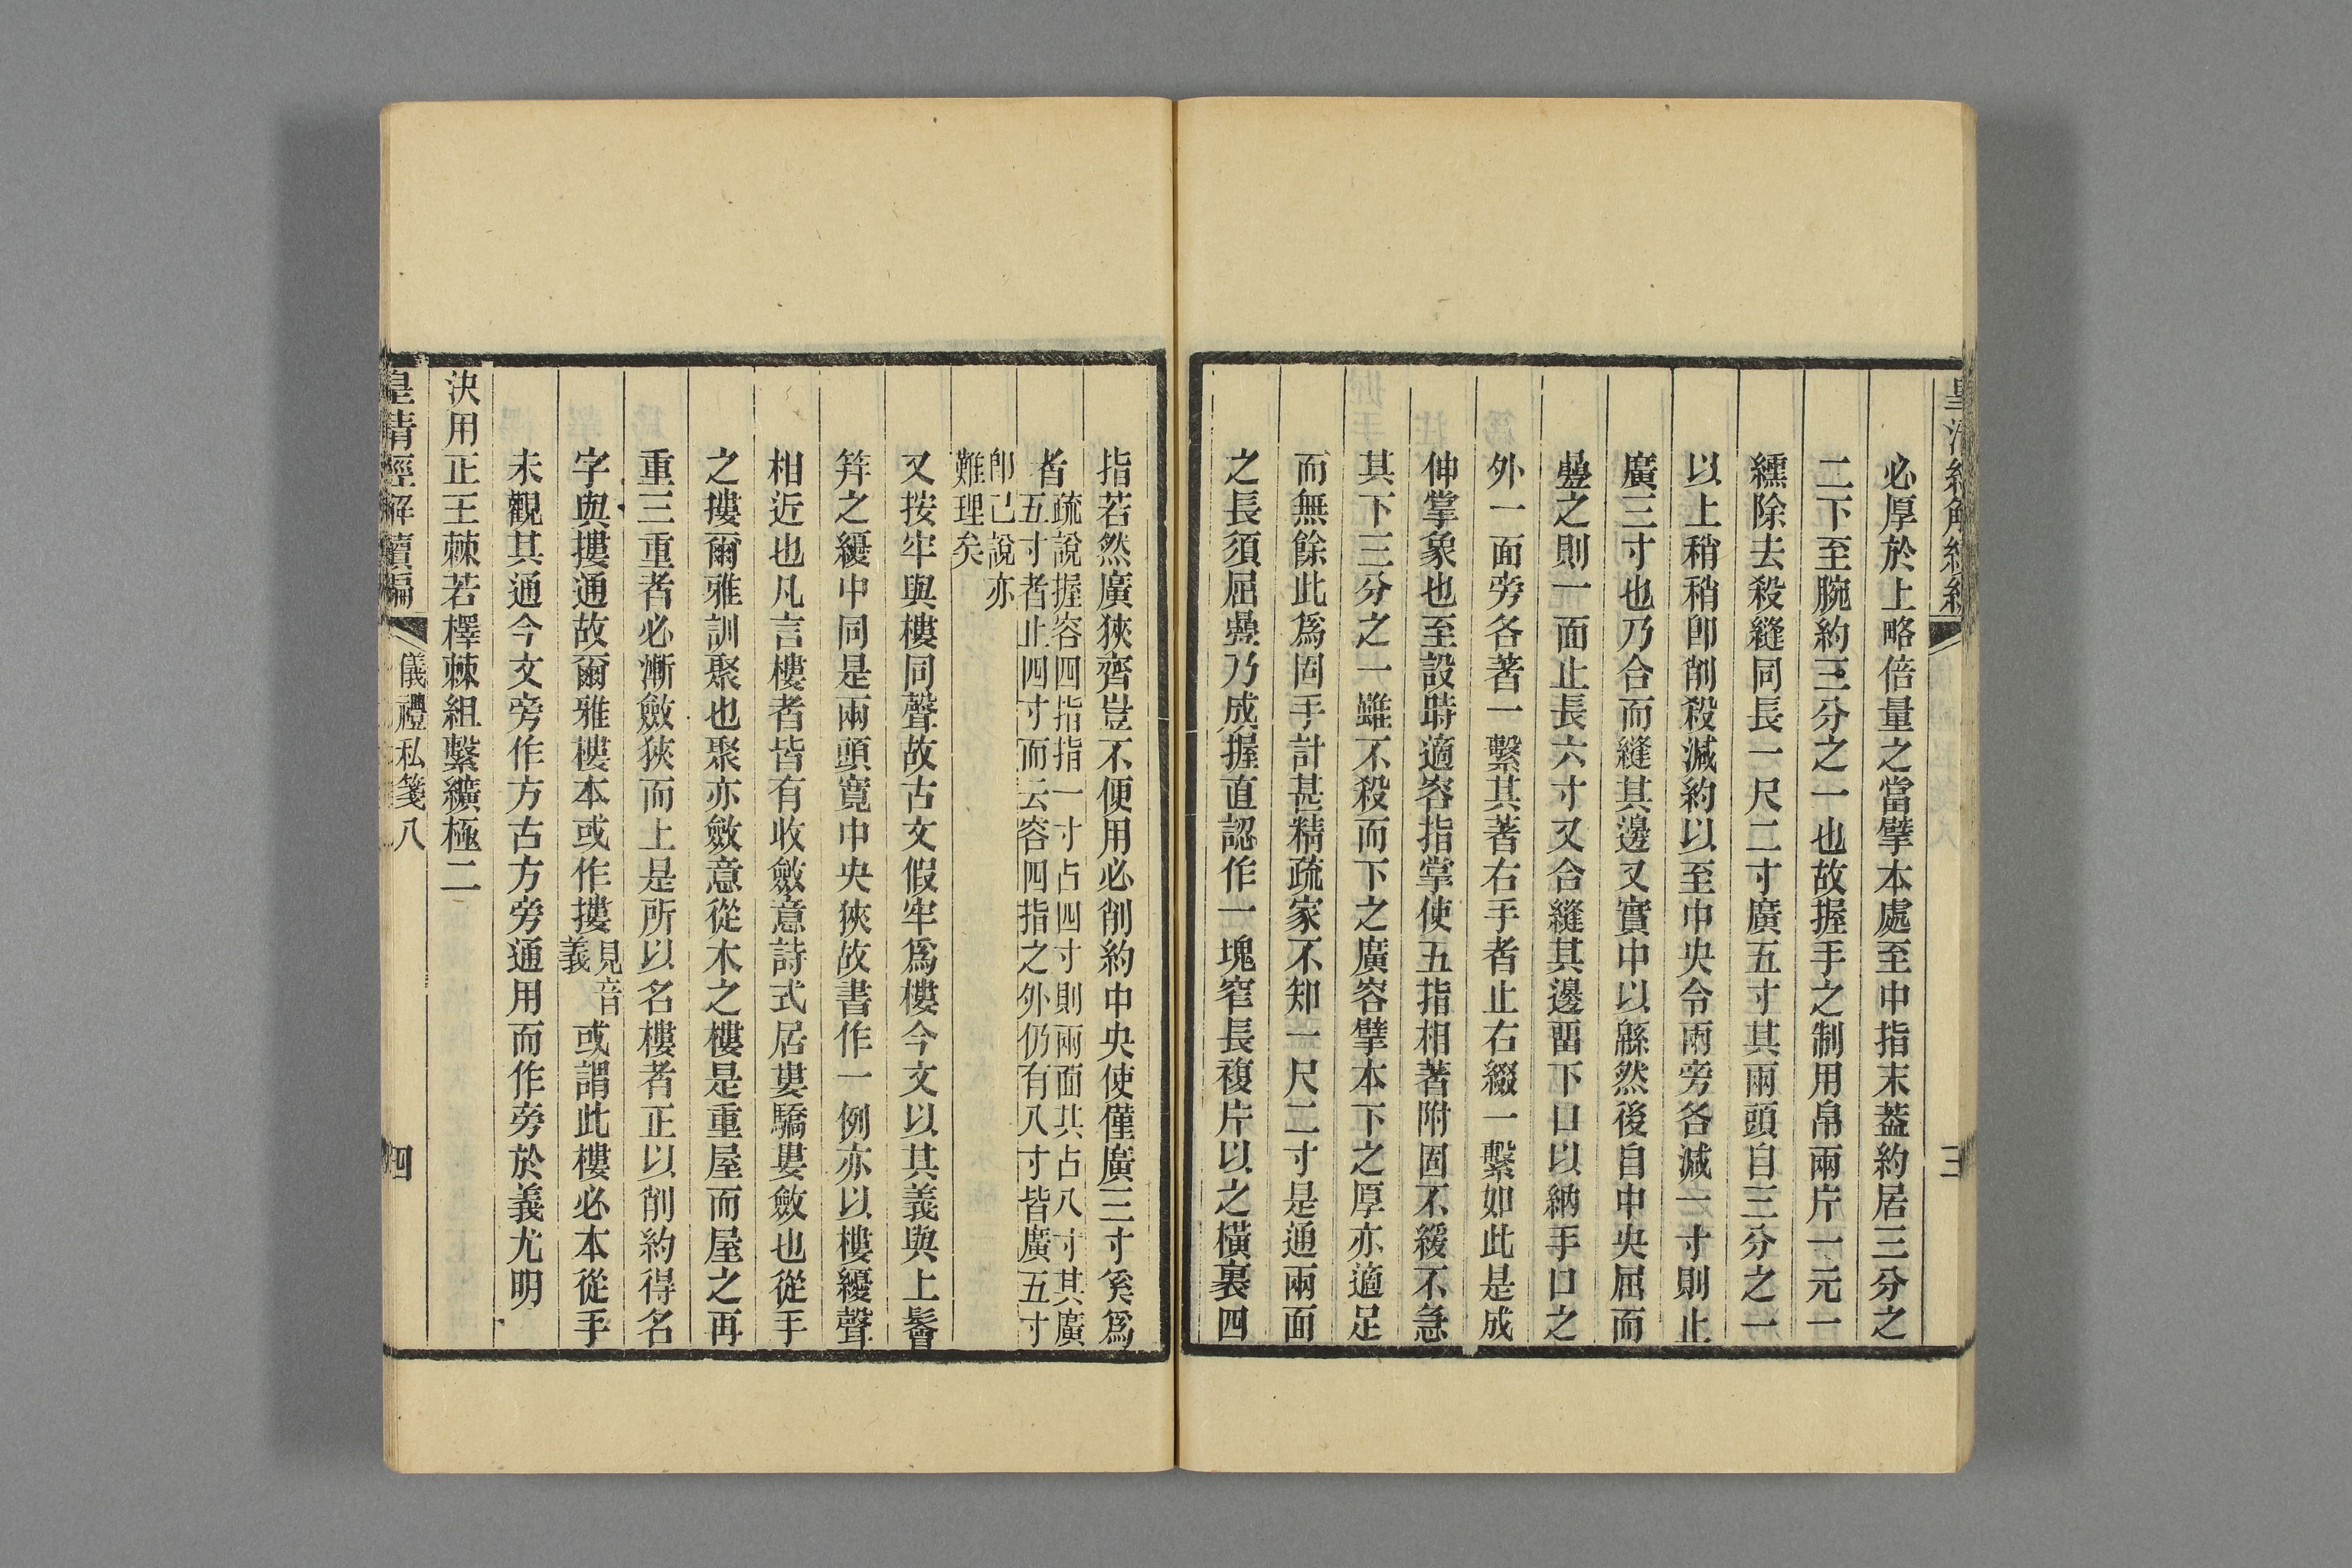 必厚於上略倍量之當擘本處至中指末葢約居三分之
二下至腕約三分之一也故握手之制用帛兩片一元一
纁除去殺縫同長一尺二寸廣五寸其兩頭自三分之一
以上稍稍卽削殺減約以至中央令兩旁各減一寸則止
廣三寸也乃合而縫其邊又實中以緜然後自中央屈而
疊之則一面止長六寸又合縫其邊畱下口以納手口之
外一面旁各著一繫其著右手者止右綴一繫如此是成
伸掌象也至設時適容指掌使五指相著附固不緩不急
其下三分之一雖不殺而下之廣容擘本下之厚亦適足
而無餘此爲固手計甚精疏家不知一尺二寸是通兩面
之長須屈疊乃成握直認作一塊窄長複片以之橫裏四
指若然廣狹齊豈不便用必削約中央使僅廣三寸奚爲
者疏說握容四指指一寸占四寸則兩面共占八寸其廣
五寸者止四寸而云容四指之外仍有八寸皆廣五寸
卽己說亦
難理矣
又按牢與樓同聲故古文假牢爲樓今文以其義與上鬠
笄之纋中同是兩頭寬中央狹故書作一例亦以樓纋聲
相近也凡言樓者皆有收斂意詩式居婁驕婁斂也從手
之摟爾雅訓聚也聚亦斂意從木之樓是重屋而屋之再
重三重者必漸斂狹而上是所以名樓者正以削約得名
字與摟通故爾雅樓本或作摟見音義或謂此樓必本從手
未觀其通今文旁作方古方旁通用而作旁於義尤明
決用正王棘若檡棘組繫纊極二
皇清經解續編
儀禮私箋八
四
三